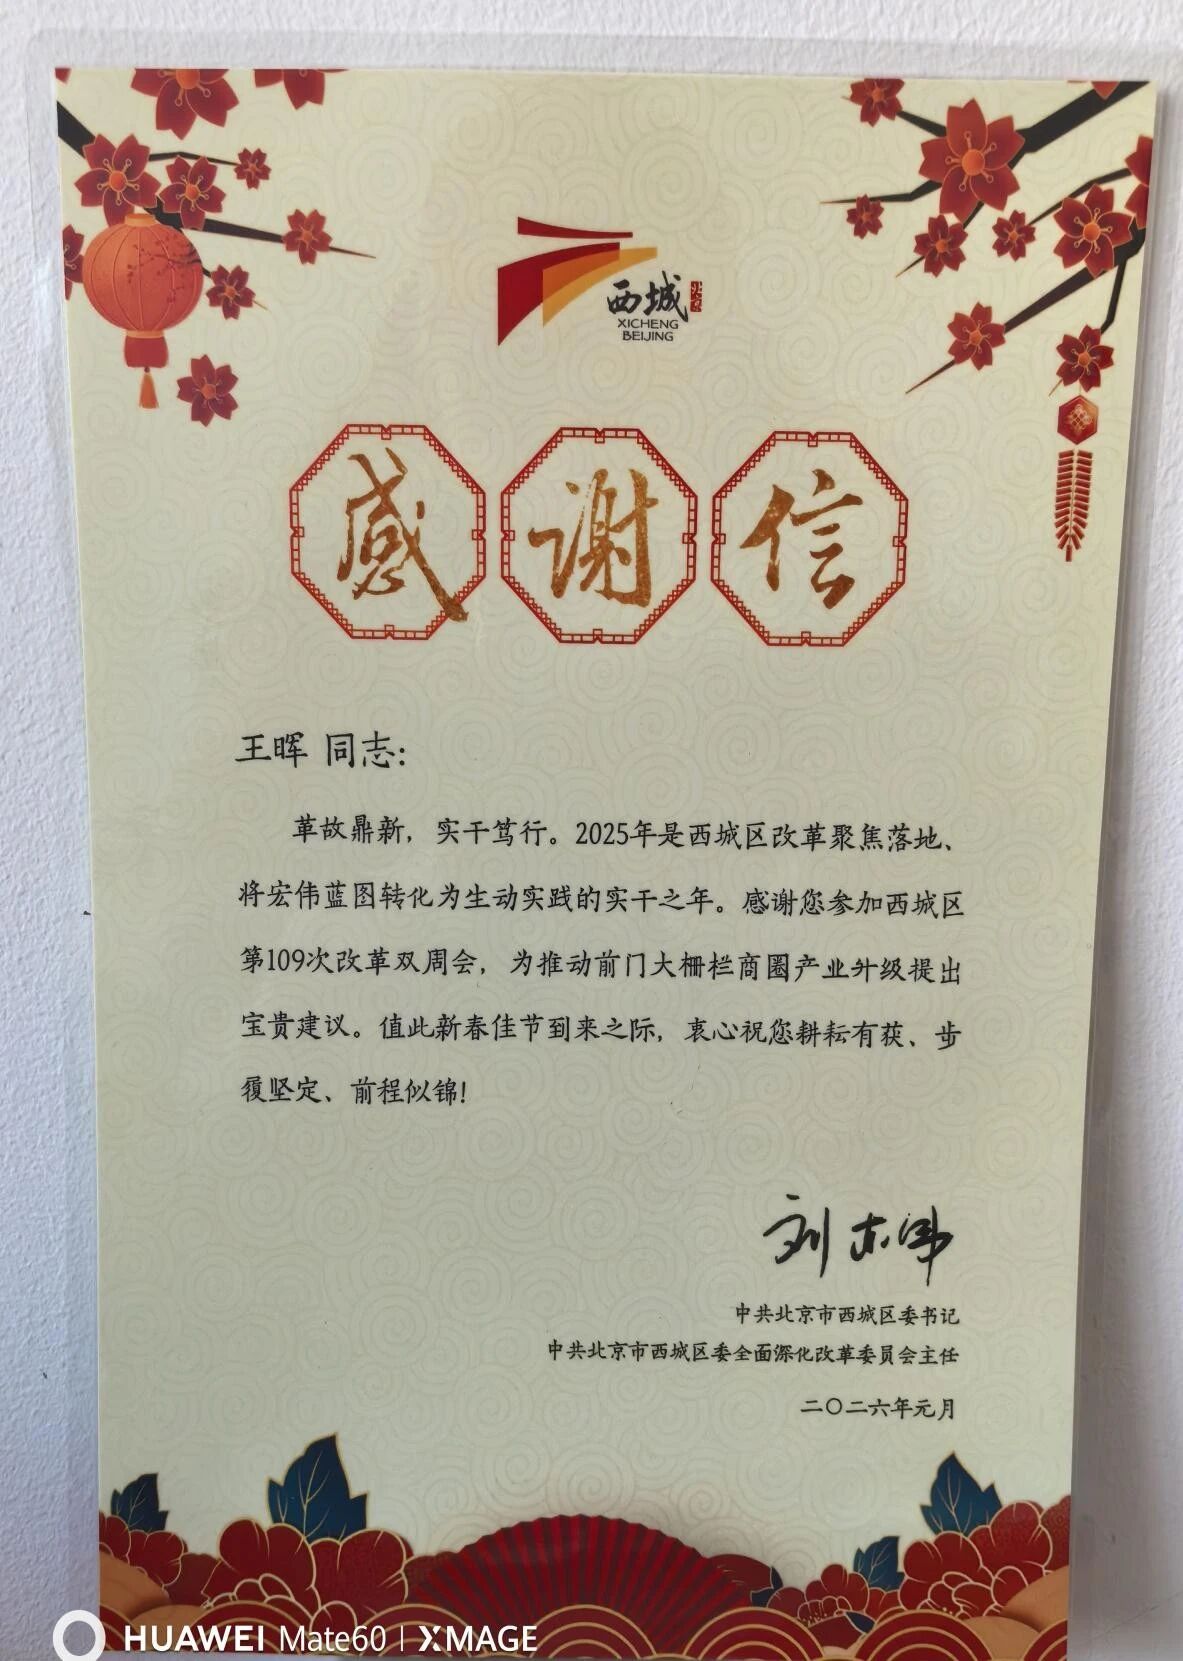 西城
北京
XICHENG
BEIJING
感谢信
王晖 同志：
革故鼎新，实干笃行。2025年是西城区改革聚焦落地、
将宏伟蓝图转化为生动实践的实干之年。感谢您参加西城区
第109次改革双周会，为推动前门大栅栏商圈产业升级提出
宝贵建议。值此新春佳节到来之际，衷心祝您耕耘有获、步
履坚定、前程似锦！
刘东伟
中共北京市西城区委书记
中共北京市西城区委全面深化改革委员会主任
二〇二六年元月
HUAWEI Mate60 | XMAGE